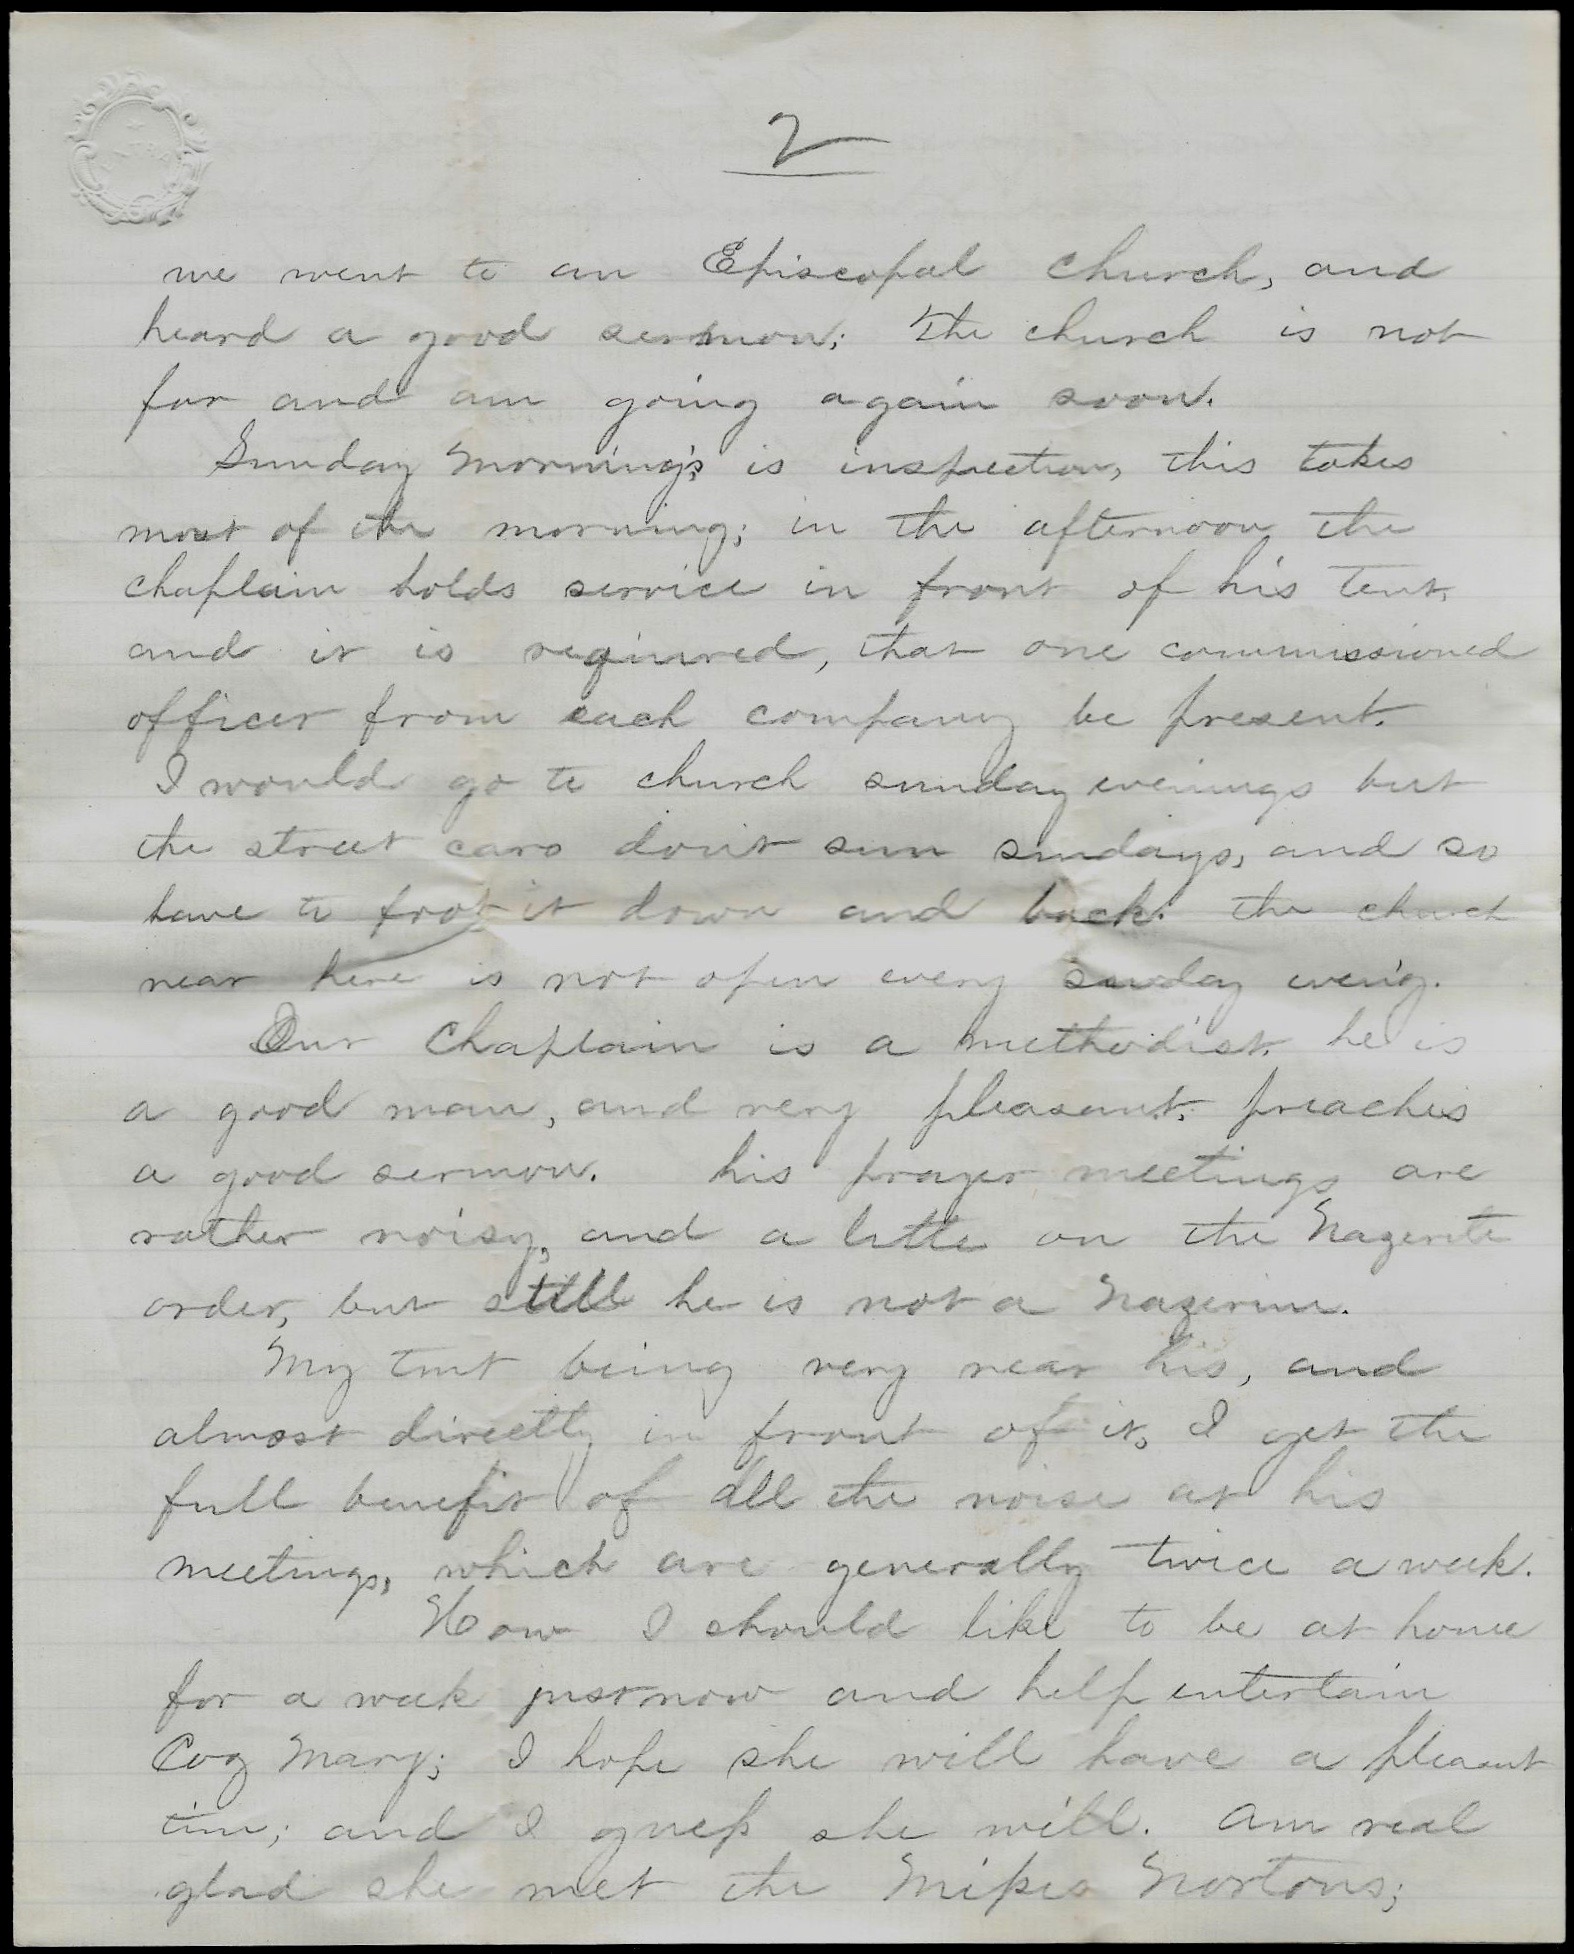 2
we went to an Episcopal church, and
heard a good sermon; The church is not
far and am going again soon.
Sunday morning's is inspection, this takes
most of the morning; in the afternoon the
chaplain holds service in front of his tent,
and it is required, that one commissioned
officer from each company be present.
I would go to church sunday evenings but
the street cars don't run sundays, and so
have to foot it down and back. the church
near here is not open every sunday even'g.
Our Chaplain is a methodist. he is
a good man, and very pleasant; preaches
a good sermon. his prayer meetings are
rather noisy, and a little on the Nazerite
order, but still he is not a Nazerine.
My tent being very near his, and
almost directly in front of it, I get the
full benefit of all the noise at his
meetings, which are generally twice a week.
How I should like to be at home
for a week just now and help entertain
Coz Mary; I hope she will have a pleasant
time; and I guess she will. am real
glad she met the Misses Nortons;